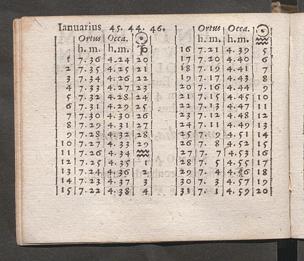 Ianuarius 45. 44. 46.
Ortus Occa. ☉
h.m. h.m. ♑
1 7.36 4.24 20
2 7.35 4.25 21
3 7.34 4.26 22
4 7.33 4.27 23
5 7.32 4.28 24
6 7.31 4.29 25
7 7.30 4.30 26
8 7.29 4.31 27
9 7.28 4.32 28
10 7.27 4.33 29
11 7.26 4.34 ♒
12 7.25 4.35 1
13 7.24 4.36 2
14 7.23 4.37 3
15 7.22 4.38 4
Ortus Occa. ☉
h.m. h.m. ♒
16 7.21 4.39 5
17 7.20 4.40 6
18 7.19 4.41 7
19 7.17 4.43 8
20 7.16 4.44 9
21 7.15 4.45 10
22 7.13 4.47 11
23 7.12 4.48 12
24 7.11 4.49 13
25 7. 9 4.51 14
26 7. 8 4.52 15
27 7. 7 4.53 16
28 7. 5 4.55 17
29 7. 4 4.56 18
30 7. 3 4.57 19
31 7. 1 4.59 20